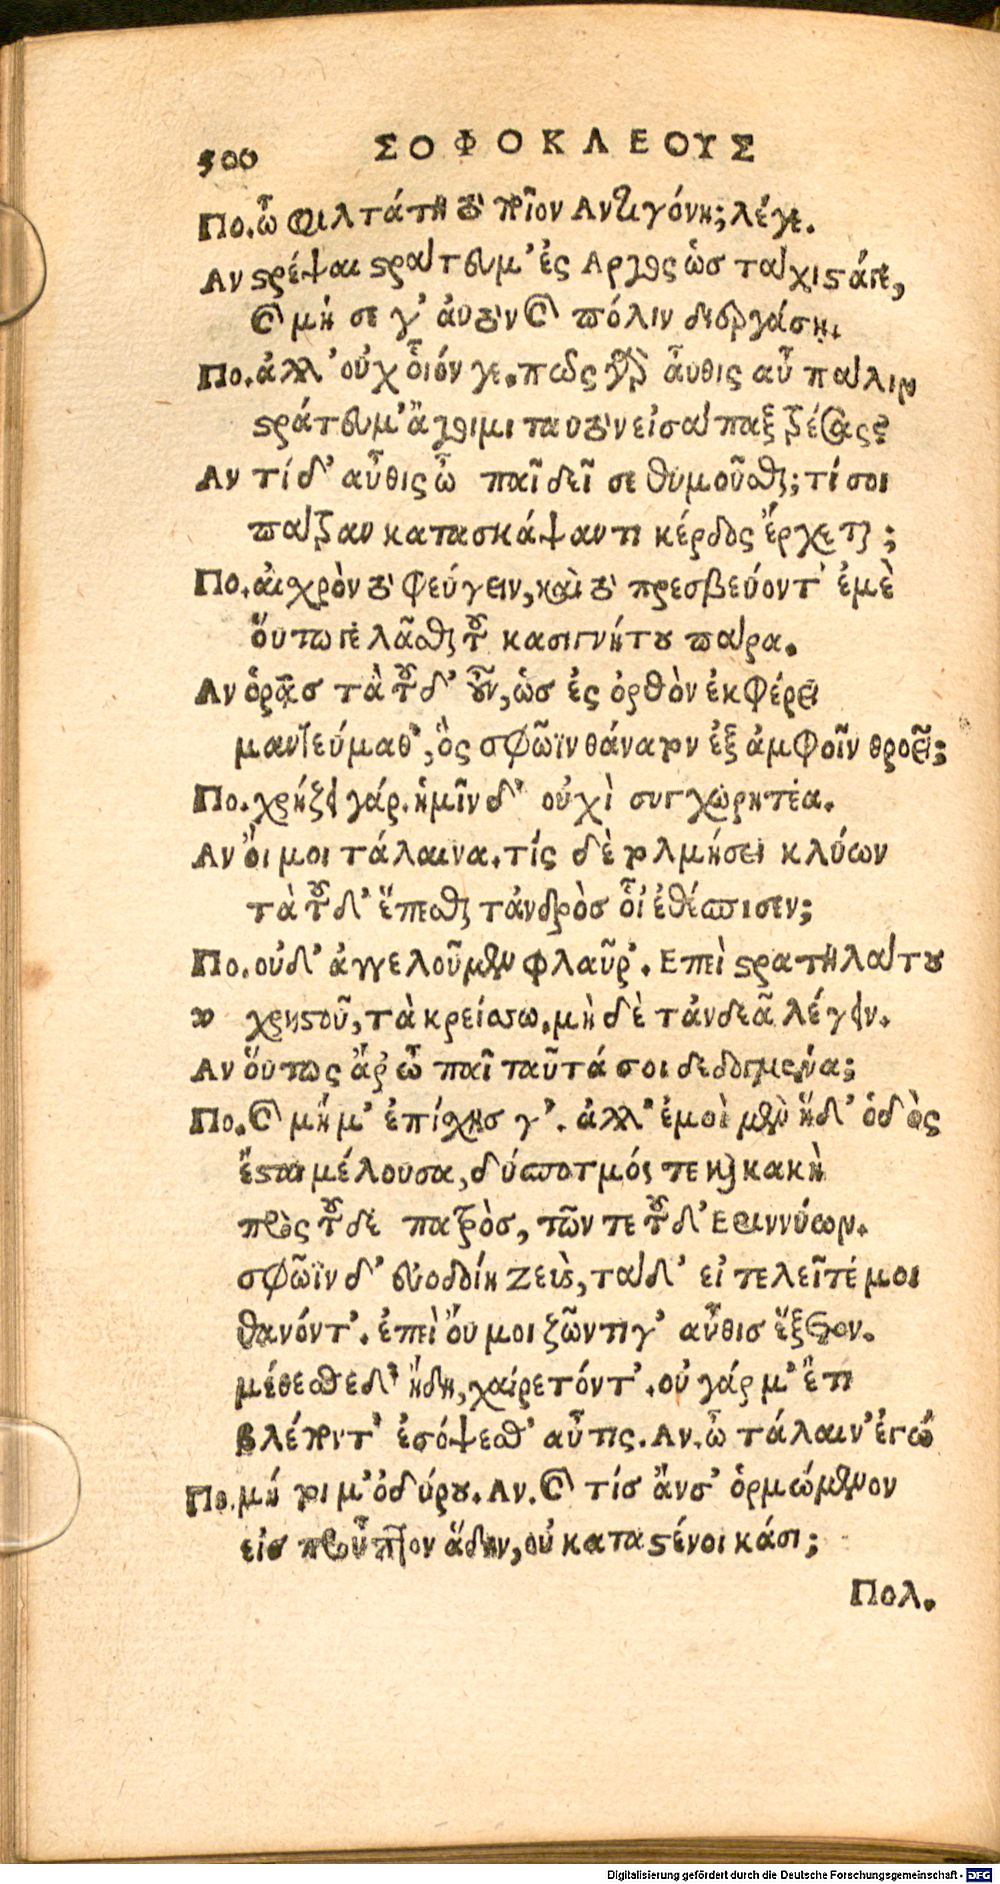 500 ΣΟΦΟΚΛΕΟΥΣ
Πο. ὦ φιλτάτη τὸ ποῖον Αντιγόνη; λέγε.
Αν στρέψαι στράτευμ' ἐς Αργος ὡσ τάχιστά γε,
καὶ μή σε γ' ἀυτὸν καὶ πόλιν διεργάσῃ.
Πο. ἀλλ' οὐχ ὁιόν γε. πῶς γὰρ ἆυθις αὖ πάλιν
στράτευμ' ἄγοιμι ταυτὸν εἰσάπαξ τρέσας;
Αν τί δ' αὖθις ὦ παῖ δεῖ σε θυμοῦσθαι; τί σοι
πάτραν κατασκάψαντι κέρδος ἔρχεται;
Πο. ἀισχρὸν τὸ φεύγειν, καὶ τὸ πρεσβεύοντ' ἐμὲ
ὅυτω γελᾶσθαι τοῦ κασιγνήτου πάρα.
Αν ὁρᾷσ τὰ τοῦδ' οὖν, ὡσ ἐς ὀρθὸν ἐκφέρει
μαντεύμαθ', ὃς σφῶϊν θάνατον ἐξ ἀμφοῖν θροεῖ;
Πο. χρήζει γάρ. ἡμῖν δ' οὐχὶ συγχωρητέα.
Αν ὄι μοι τάλαινα. τίς δὲ τολμήσει κλύων
τὰ τοῦδ' ἕπεσθαι τἀνδρὸσ οἷ' ἐθέσπισεν;
Πο. οὐδ' ἀγγελοῦμεν φλαῦρ'. Επεὶ στρατηλάτου
χρηστοῦ, τὰ κρείσσω. μὴ δὲ τἀνδεᾶ λέγειν.
Αν ὅυτως ἄρ' ὦ παῖ ταῦτά σοι δεδογμένα;
Πο. καὶ μή μ' ἐπίχησ γ'. ἀλλ' ἐμοὶ μὲν ἥδ' ὁδὸς
ἔσται μέλουσα, δύσποτμός τε καὶ κακὴ
πρὸς τοῦδε πατρὸσ, τῶν τε τοῦδ' Εριννύων.
σφῶϊν δ' ευοδοίη Ζεὺς, τάδ' εἰ τελεῖτέ μοι
θανόντ'. ἐπεὶ ὄυ μοι ζῶντι γ' αὖθισ ἕξετον.
μέθεσθε δ' ἤδη, χαίρετόντ'. οὐ γάρ μ' ἔτι
βλέποντ' ἐσόψεσθ' αὖτις. Αν. ὦ τάλαιν' ἐγώ
Πο. μή τοι μ' ὀδύρου. Αν. καὶ τίσ ἄν σ' ὁρμώμενον
εἰσ προὖπτον ἅδην, οὐ καταστένοι κάσι;
Πολ.
Digitalisierung gefördert durch die Deutsche Forschungsgemeinschaft - DFG